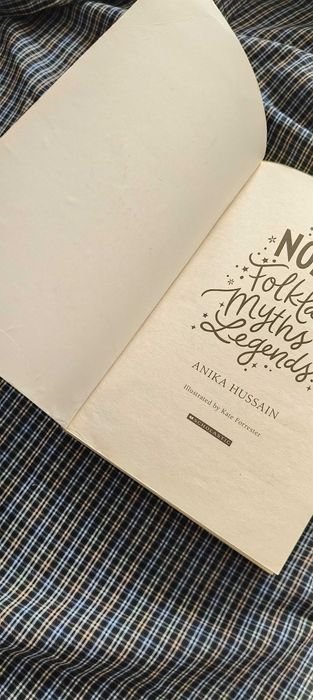 NO
Folkta
Myths
Legends
ANIKA HUSSAIN
Illustrated by Kate Forrester
SCHOLASTIC